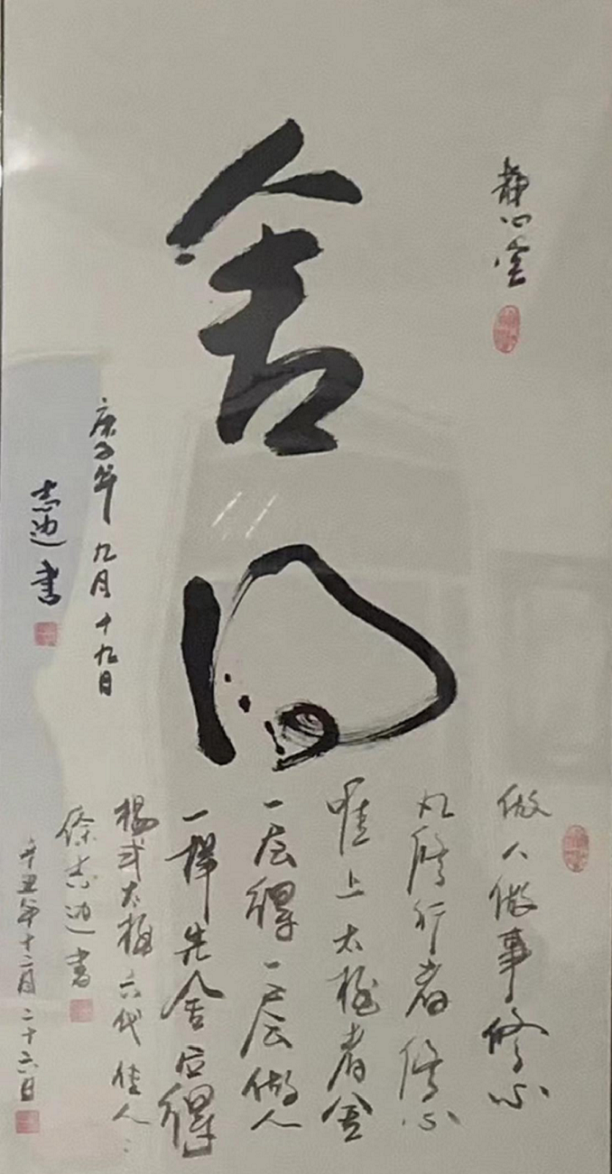 静心
舍得
庚子年九月十九日
志书
做人做事修心
凡修行者修心
唯上太极者舍
一层得一层做人
一样先舍后得
杨式太极六代传人
徐志书
辛丑年十二月二十六日